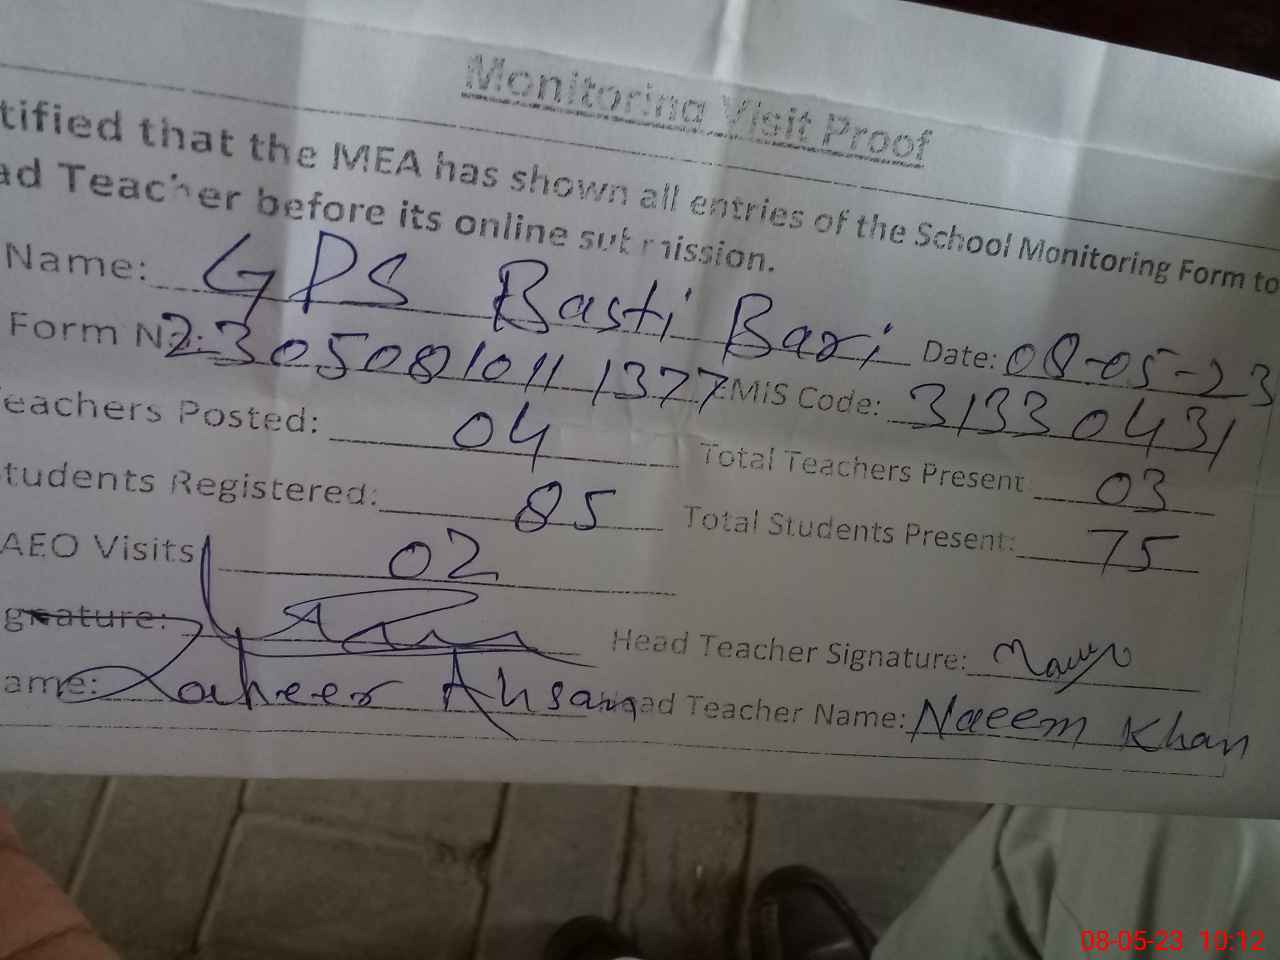 Monitoring Visit Proof
tified that the MEA has shown all entries of the School Monitoring Form to
ad Teacher before its online submission.
Name: GPS Basti Bari Date: 08-05-23
Form N 23050810111377 EMIS Code: 31330431
eachers Posted: 04 Total Teachers Present 03
tudents Registered: 85 Total Students Present: 75
AEO Visits 02
gnature: Head Teacher Signature:
ame: Zaheer Ahsan Head Teacher Name: Naeem Khan
08-05-23 10:12